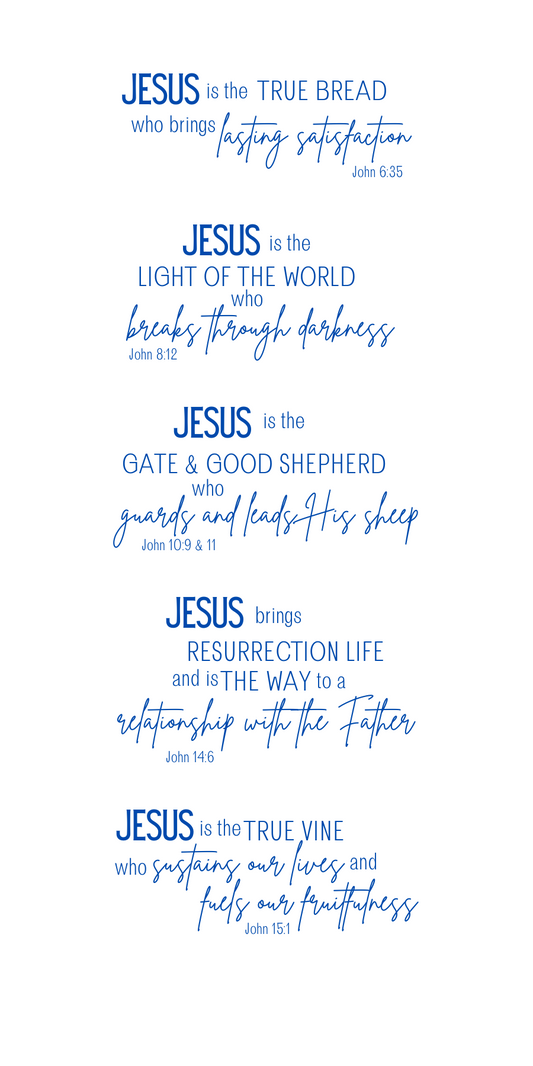 JESUS is the TRUE BREAD
who brings lasting satisfaction
John 6:35
JESUS is the
LIGHT OF THE WORLD
who
breaks through darkness
John 8:12
JESUS is the
GATE & GOOD SHEPHERD
who
guards and leads His sheep
John 10:9 & 11
JESUS brings
RESURRECTION LIFE
and is THE WAY to a
relationship with the Father
John 14:6
JESUS is the TRUE VINE
who sustains our lives and
fuels our fruitfulness
John 15:1